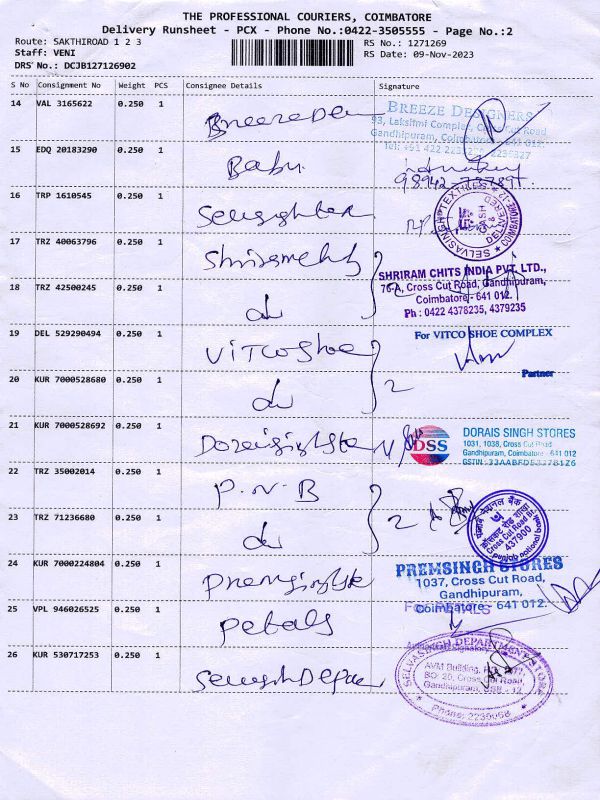 THE PROFESSIONAL COURIERS, COIMBATORE
Delivery Runsheet - PCX - Phone No.:0422-3505555 - Page No.:2
Route: SAKTHIROAD 1 2 3
RS No.: 1271269
Staff: VENI
RS Date: 09-Nov-2023
DRS No.: DCJB127126902
S No Consignment No Weight PCS Consignee Details Signature
14 VAL 3165622 0.250 1 BreezeDen
BREEZE DESIGNERS
93, Lakshmi Complex, Cross Cut Road
Gandhipuram, Coimbatore - 641 012.
15 EDQ 20183290 0.250 1 Babu
16 TRP 1610545 0.250 1
SELVASINGH TEXTILES
COIMBATORE-12
CASH
DELIVERED
17 TRZ 40063796 0.250 1
18 TRZ 42500245 0.250 1 do 2
SHRIRAM CHITS INDIA PVT. LTD.,
76-A, Cross Cut Road, Gandhipuram,
Coimbatore - 641 012.
Ph : 0422 4378235, 4379235
19 DEL 529290494 0.250 1 VITCO Shoe
For VITCO SHOE COMPLEX
Partner
20 KUR 7000528680 0.250 1 do 2
21 KUR 7000528692 0.250 1
DSS
DORAIS SINGH STORES
1031, 1038, Cross Cut Road
Gandhipuram, Coimbatore - 641 012
22 TRZ 35002014 0.250 1 P.N.B
23 TRZ 71236680 0.250 1 do 2
Cross Cut Road Br.
437900
punjab national bank
24 KUR 7000224804 0.250 1
PREMSINGH STORES
1037, Cross Cut Road,
Gandhipuram,
Coimbatore - 641 012.
25 VPL 946026525 0.250 1 Petals
For PETALS
26 KUR 530717253 0.250 1
SELVASINGH DEPARTMENTAL
AVM Building,
Gandhipuram, CBE - 12